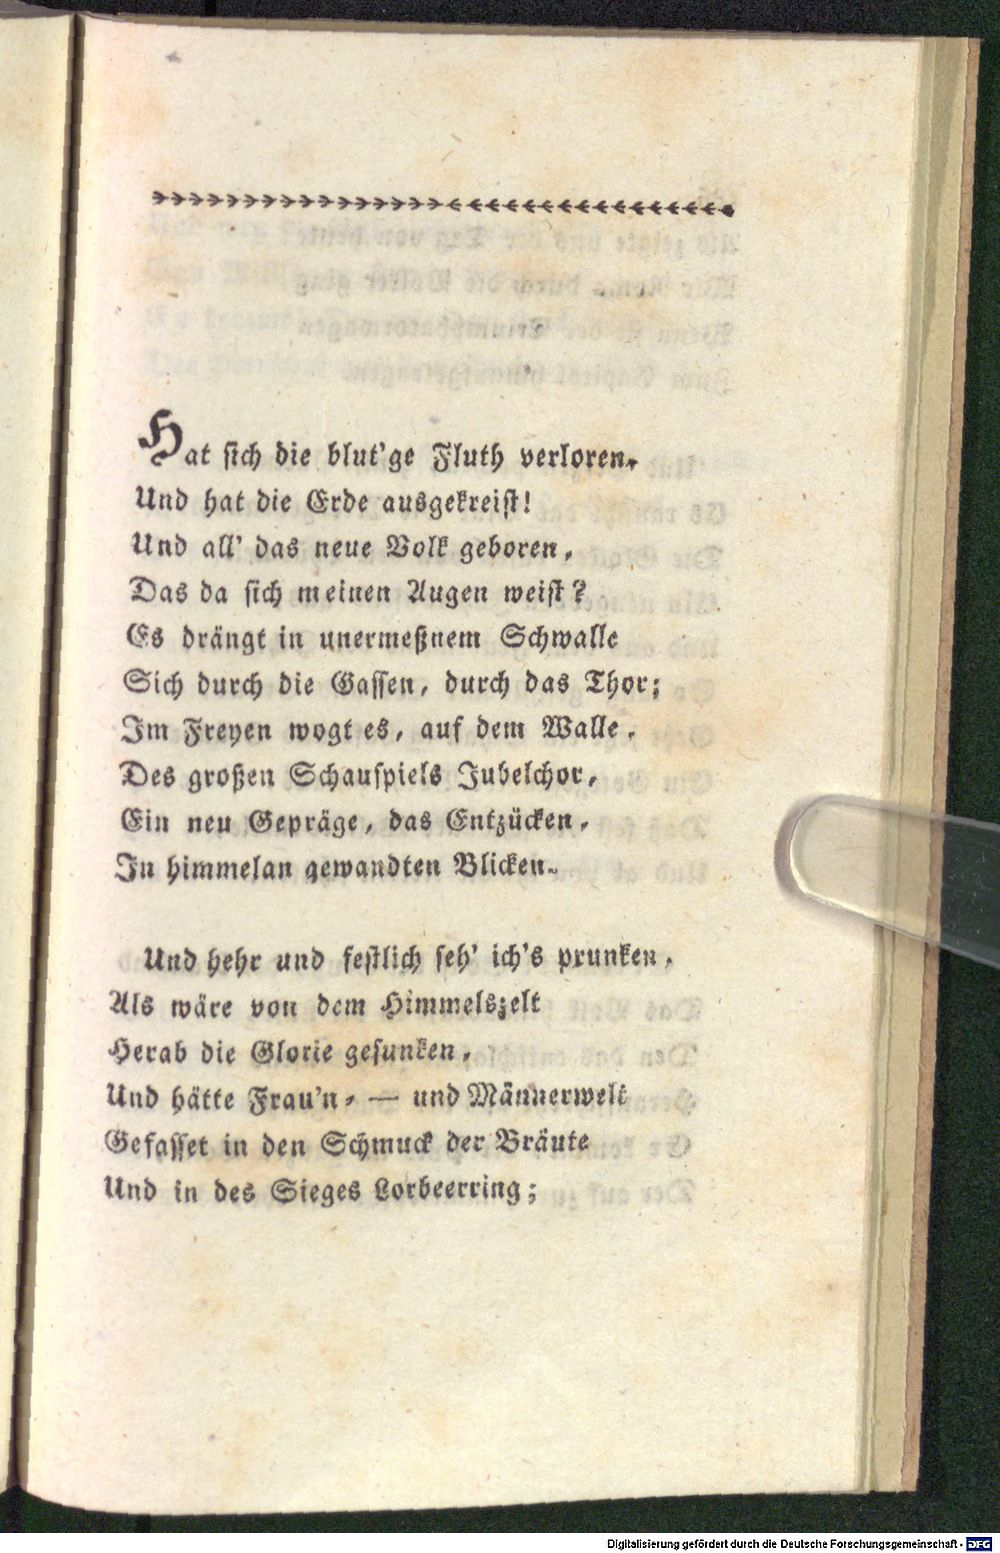 Hat sich die blut'ge Fluth verloren,
Und hat die Erde ausgekreist!
Und all' das neue Volk geboren,
Das da sich meinen Augen weist?
Es drängt in unermeßnem Schwalle
Sich durch die Gassen, durch das Thor;
Im Freyen wogt es, auf dem Walle,
Des großen Schauspiels Jubelchor,
Ein neu Gepräge, das Entzücken,
In himmelan gewandten Blicken.
Und hehr und festlich seh' ich's prunken,
Als wäre von dem Himmelszelt
Herab die Glorie gesunken,
Und hätte Frau'n- — und Männerwelt
Gefasset in den Schmuck der Bräute
Und in des Sieges Lorbeerring;
Digitalisierung gefördert durch die Deutsche Forschungsgemeinschaft - DFG